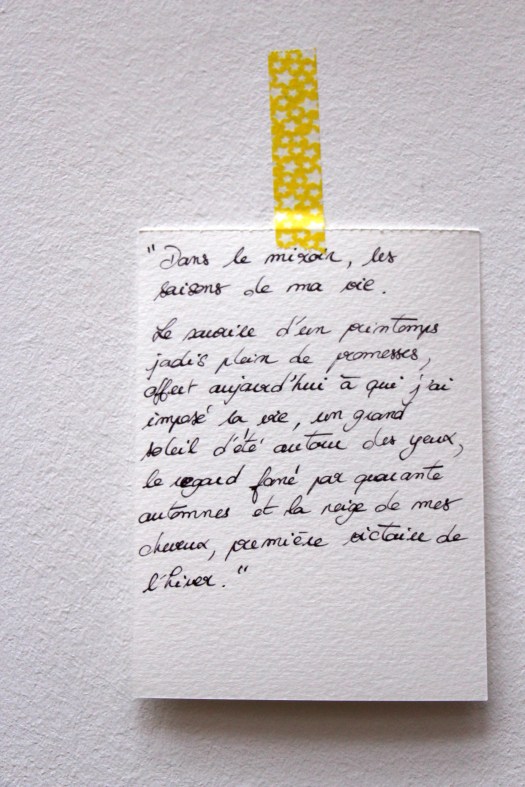 "Dans le miroir, les
saisons de ma vie.
Le sourire d'un printemps
jadis plein de promesses,
offert aujourd'hui à qui j'ai
imposé la vie, un grand
soleil d'été autour des yeux,
le regard fané par quarante
automnes et la neige de mes
cheveux, première victoire de
l'hiver."